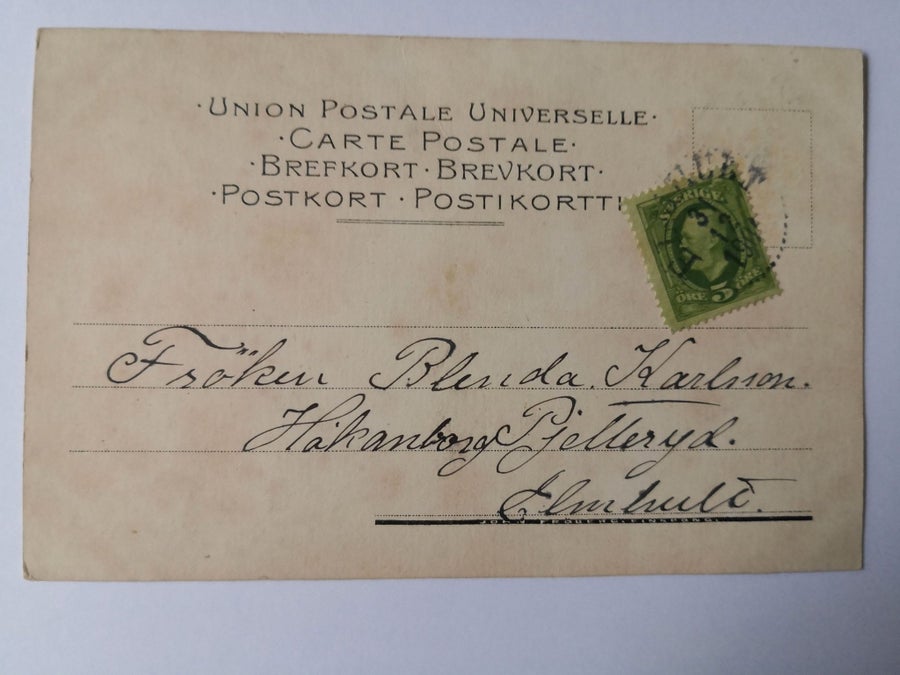 ·UNION POSTALE UNIVERSELLE·
·CARTE POSTALE·
·BREFKORT·BREVKORT·
·POSTKORT·POSTIKORTTI
SVERIGE
3
1
ÖRE 5 ÖRE
Fröken Blenda Karlsson.
Håkanborg Pjetteryd.
Elmhult.